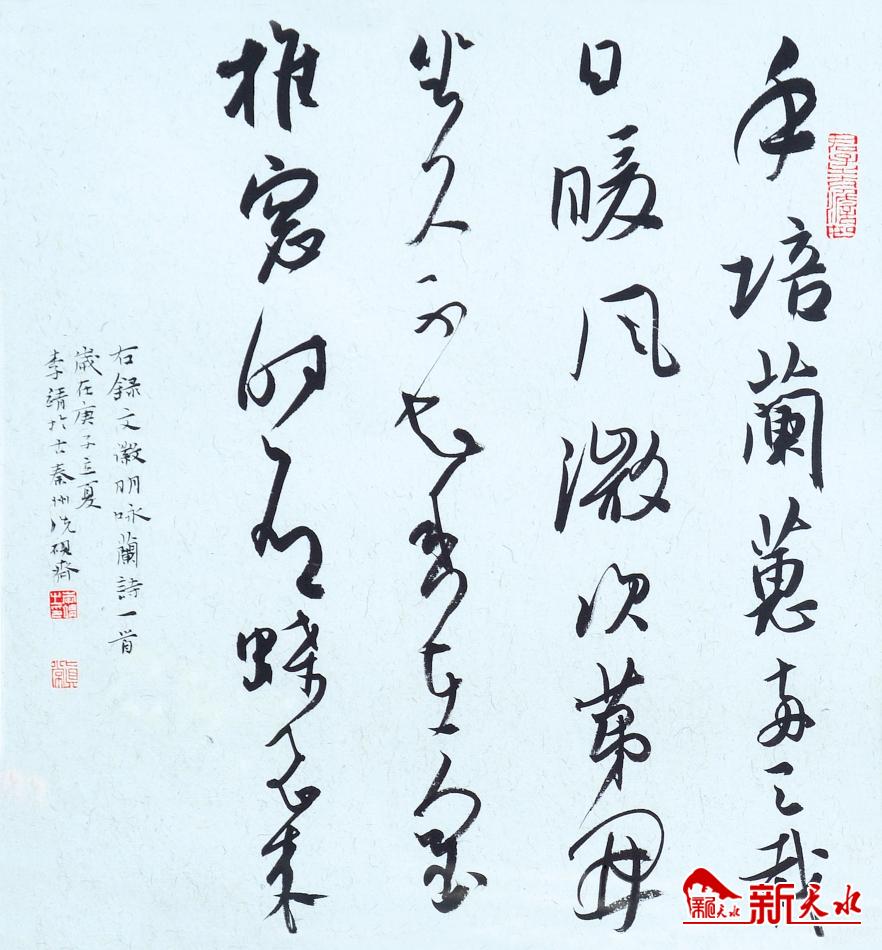 手培蘭蕙兩三栽
日暖風微次第開
坐久不知香在室
推窗時有蝶飛來
右錄文徽明咏蘭詩一首
歲在庚子立夏
李靖於古秦州洗硯齋
新天水